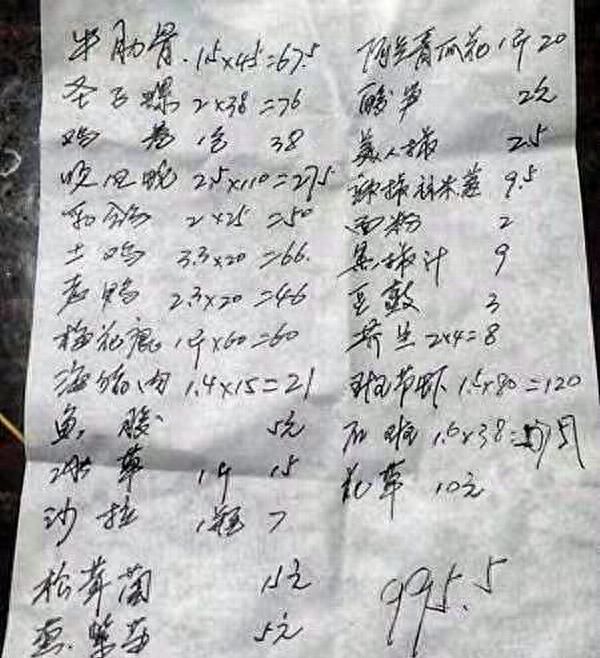 牛肋骨 1.5×45=67.5
圣子螺 2×38=76
鸡卷 1包 38
2.5×110=275
乳鸽 2×25=50
土鸡 3.3×20=66
老鸭 2.3×20=46
梅花鹿 1斤×60=60
海猪肉 1.4×15=21
鱼胶 5元
冰草 1斤 15
沙拉 1瓶 7
松茸菌 15元
5元
青瓜花 1斤 20
酸笋 2元
美人椒 25
9.5
面粉 2
黑椒汁 9
豆鼓 3
2×4=8
斑节虾 1.5×80=120
石斑 1.5×38=57
花草 10元
995.5